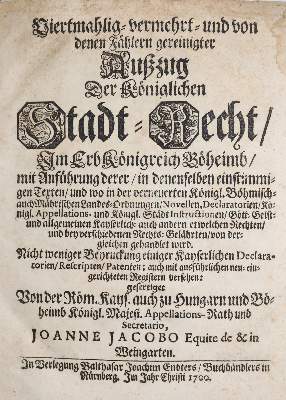 Viertmahlig-vermehrt- und von
denen Fählern gereinigter
Außzug
Der Königlichen
Stadt-Recht/
Im ErbKönigreich Böheimb/
mit Anführung derer/ in denenselben einstimmi-
gen Texten/ und wo in der verneuerten Königl. Böhmisch-
auch Mährischen Landes-Ordnungen/ Novellen, Declaratorien/ Kö-
nigl. Appellations- und Königl. Städt Instructionen/ Gött- Geist-
und allgemeinen Kayserlich- auch andern etwelchen Rechten/
und bey verschiedenen Rechts-Gelährten/ von der-
gleichen gehandlet wird.
Nicht weniger Beyruckung einiger Kayserlichen Declara-
torien/ Rescripten/ Patenten; auch mit ausführlichen neu-ein-
gerichteten Registern versehen:
gefertiget
Von der Röm. Kays. auch zu Hungarn und Bö-
heimb Königl. Majest. Appellations-Rath und
Secretario,
JOANNE JACOBO Equite de & in
Weingarten.
In Verlegung Balthasar Joachim Endters/ Buchhändlers in
Nürnberg. Im Jahr Christi 1700.